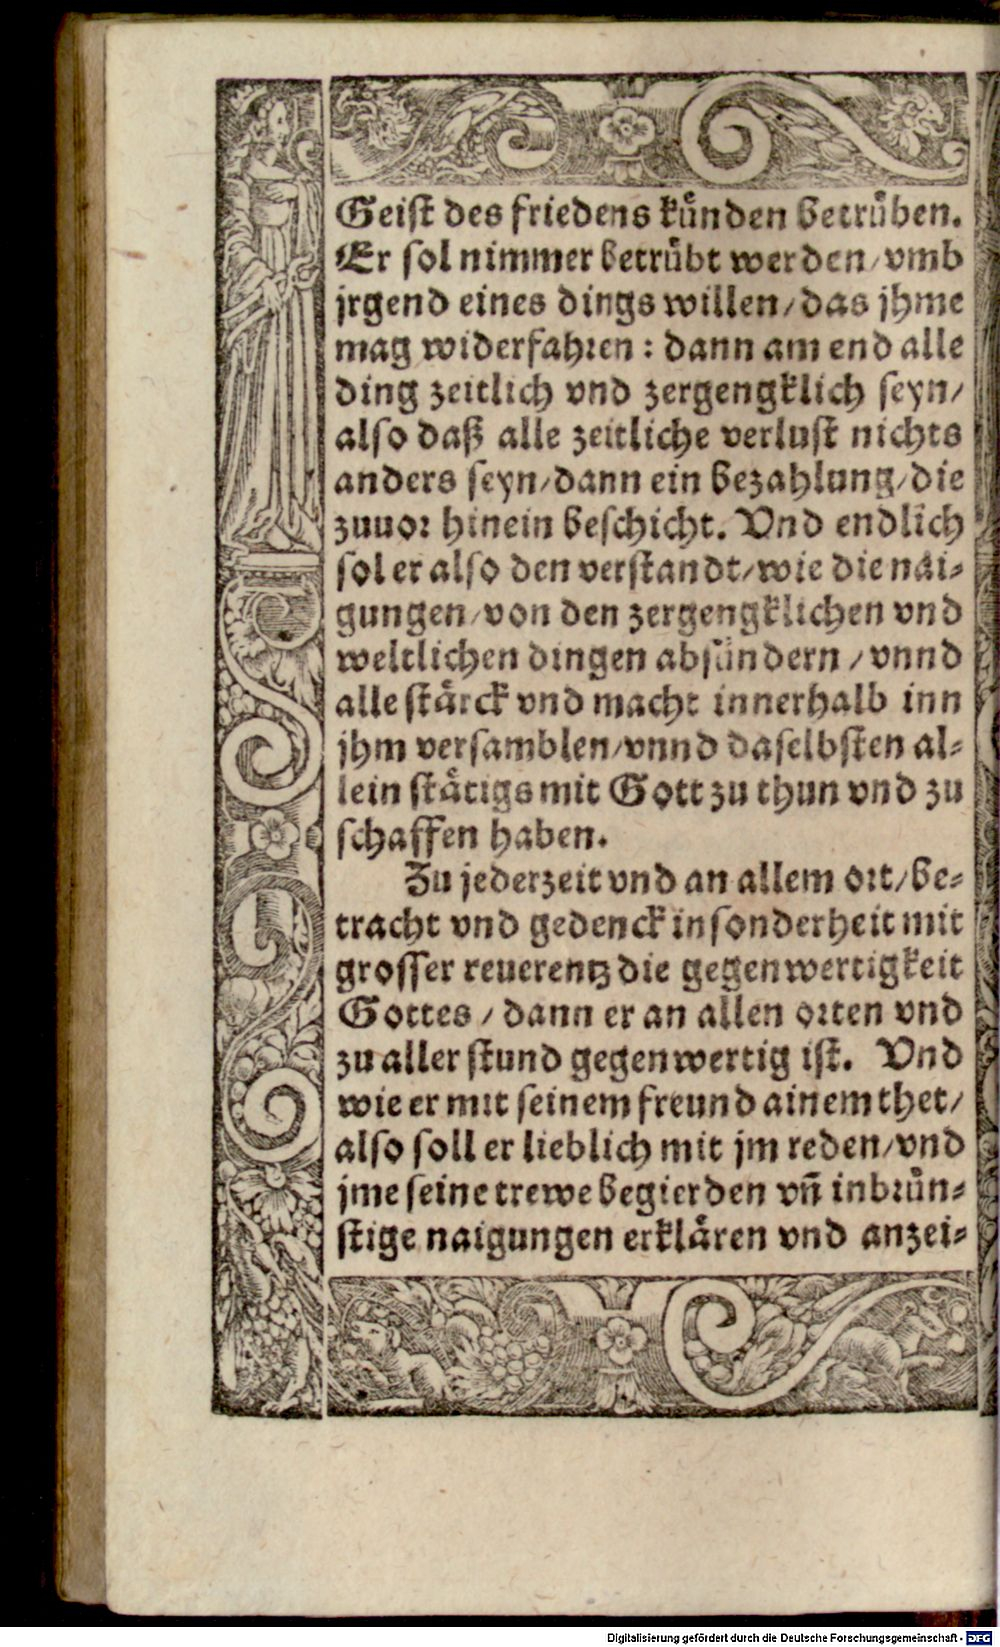 Geiſt des friedens kuͤnden betruͤben.
Er ſol nimmer betruͤbt werden/ vmb
jrgend eines dings willen/ das jhme
mag widerfahꝛen: dann am end alle
ding zeitlich vnd zergengklich ſeyn/
alſo daß alle zeitliche verluſt nichts
anders ſeyn/ dann ein bezahlung/ die
zuuoꝛ hinein beſchicht. Vnd endlich
ſol er alſo den verſtandt/ wie die nai⸗
gungen/ von den zergengklichen vnd
weltlichen dingen abſuͤndern / vnnd
alle ſtaͤrck vnd macht innerhalb inn
jhm verſamblen/ vnnd daſelbſten al⸗
lein ſtaͤtigs mit Gott zu thun vnd zu
ſchaffen haben.
Zu jederzeit vnd an allem oꝛt/ be⸗
tracht vnd gedenck inſonderheit mit
groſſer reuerentz die gegenwertigkeit
Gottes / dann er an allen oꝛten vnd
zu aller ſtund gegenwertig iſt. Vnd
wie er mit ſeinem freund ainem thet/
alſo ſoll er lieblich mit jm reden/ vnd
jme ſeine trewe begierden vñ inbꝛuͤn⸗
ſtige naigungen erklaͤren vnd anzei⸗
Digitalisierung gefördert durch die Deutsche Forschungsgemeinschaft - DFG